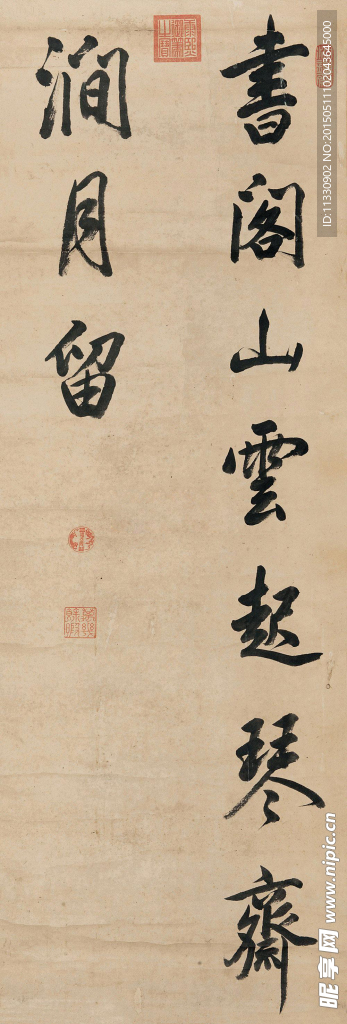 書閣山雲起琴齋
澗月留
康熙御筆之寶
ID:11330902 NO:20150511102043645000
昵享网 www.nipic.cn